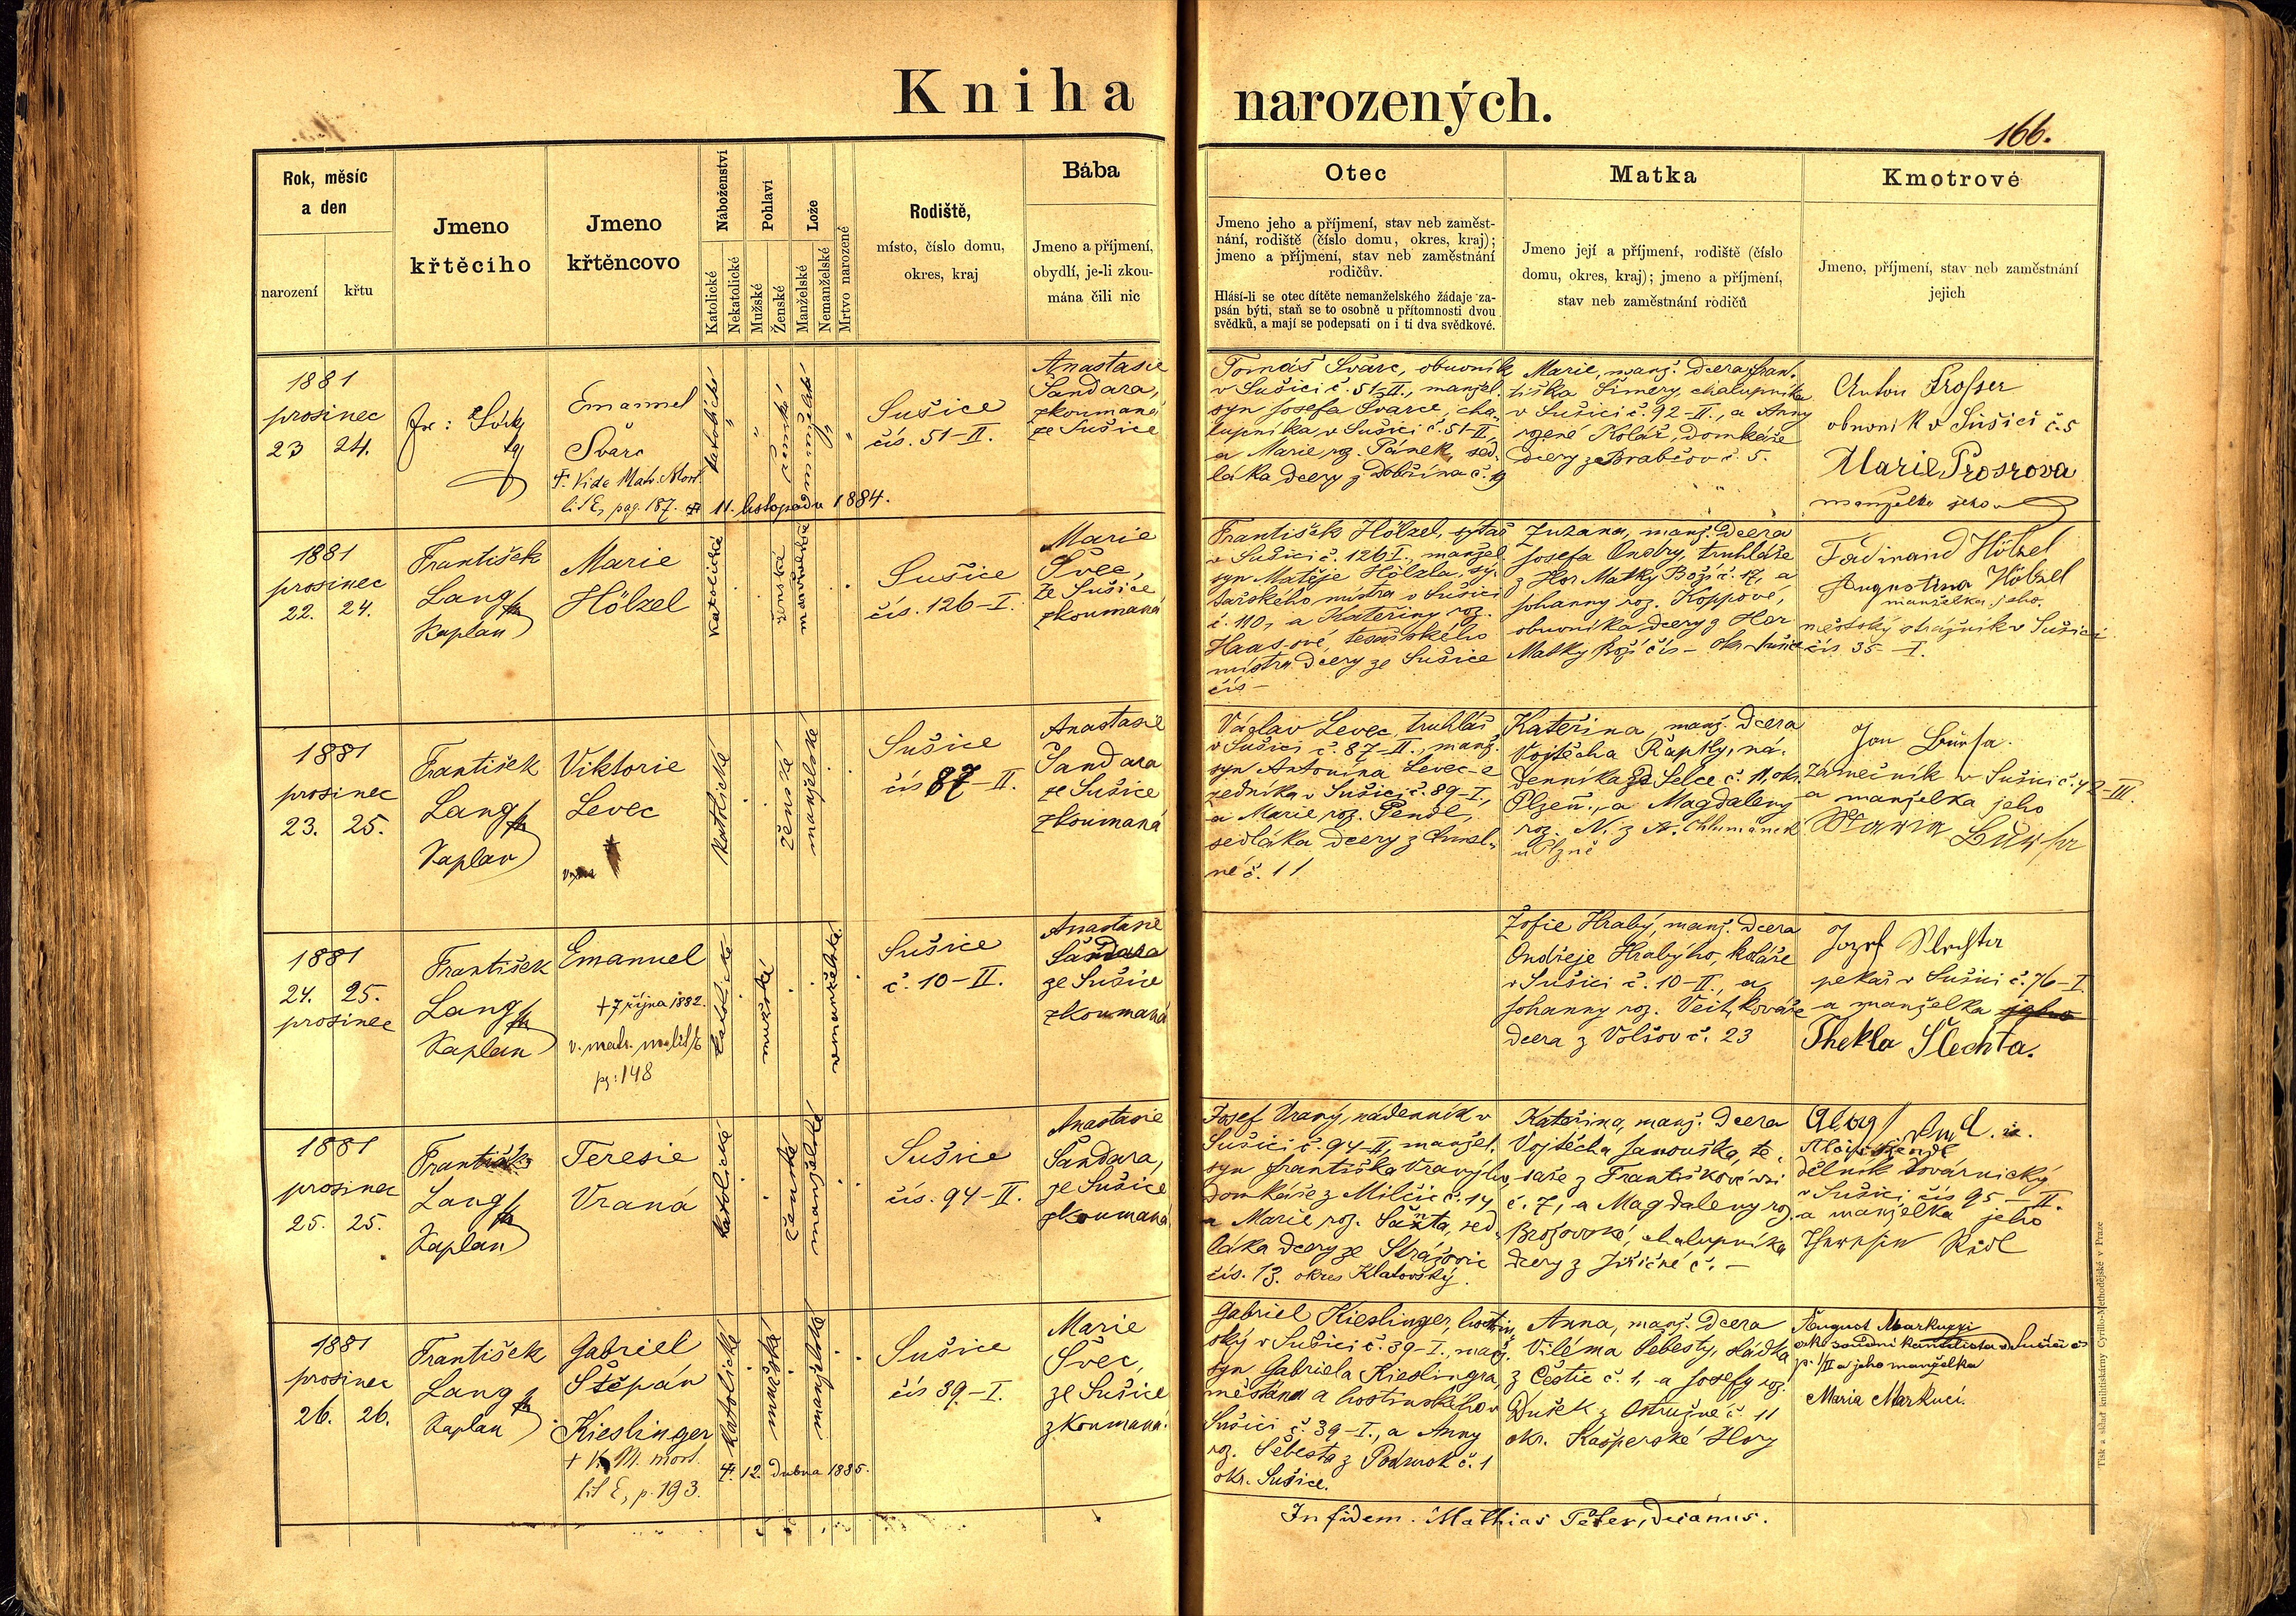 Kniha narozených.
166.
Rok, měsíc
a den
narození
křtu
Jmeno
křtěcího
Jmeno
křtěncovo
Náboženství
Katolické
Nekatolické
Pohlaví
Mužské
Ženské
Lože
Manželské
Nemanželské
Mrtvo narozené
Rodiště,
místo, číslo domu,
okres, kraj
Bába
Jmeno a příjmení,
obydlí, je-li zkou-
mána čili nic
Otec
Jmeno jeho a příjmení, stav neb zaměst-
nání, rodiště (číslo domu, okres, kraj);
jmeno a příjmení, stav neb zaměstnání
rodičův.
Hlásí-li se otec dítěte nemanželského žádaje za-
psán býti, staň se to osobně u přítomnosti dvou
svědků, a mají se podepsati on i ti dva svědkové.
Matka
Jmeno její a příjmení, rodiště (číslo
domu, okres, kraj); jmeno a příjmení,
stav neb zaměstnání rodičů
Kmotrové
Jmeno, příjmení, stav neb zaměstnání
jejich
1881
prosinec
23 24.
Emanuel
Švarc
†. Vide Matr. Mort.
lit E, pag. 187. † 11. listopadu 1884.
katolické
ženské
Sušice
čís. 51-II.
Anastasie
Šandara,
zkoumaná
ze Sušice
Tomáš Švarc, obuvník
v Sušici č. 51-II., manžel.
syn Josefa Švarce, cha-
lupníka, v Sušici č. 51-II,
a Marie roz. Pánek, sed-
láka dcery z Dobřína č. 9
Marie, manž. dcera Fran-
tiška Šimery, chalupníka
v Sušici č. 92-II., a Anny
rozené Kolář, domkáře
dcery z Brabčov č. 5.
Anton Prosser
obuvník v Sušici č. 5
Marie Prosrova
manželka jeho
1881
prosinec
22. 24.
František
Lang
Kaplan
Marie
Hölzel
katolické
ženské
manželské
Sušice
čís. 126-I.
Marie
Švec,
ze Sušice
zkoumaná
František Hölzel, sytař
v Sušici č. 126 I., manžel.
syn Matěje Hölzla, sy-
tařského mistra v Sušici
č. 110, a Kateřiny roz.
Haas-ové, tesařského
mistra dcery ze Sušice
čís -
Zuzana, manž. dcera
Josefa Ondry, truhláře
z Hor Matky Boží č. 17, a
Johanny roz. Koppové,
obuvníka dcery z Hor
Matky Boží čís - okr. Sušice
Ferdinand Hölzel
Augustina Hölzel
manželka jeho.
městský strážník v Sušici
čís. 35 - I.
1881
prosinec
23. 25.
František
Lang
Kaplan
Viktorie
Levec
katolické
ženské
manželské
Sušice
čís 87-II.
Anastasie
Šandara
ze Sušice
zkoumaná
Václav Levec, truhlář
v Sušici č. 87-II., manž.
syn Antonína Levec-e
zedníka v Sušici č. 89-I.,
a Marie roz. Pendl,
sedláka dcery z
né č. 11
Kateřina, manž. dcera
Vojtěcha Řapkly, ná-
denníka ze Selce č. 11, okr.
Plzeň., a Magdaleny
roz. N. z N. Chlumánek
u Plzně
Jan Burſa.
zámečník v Sušici č. 42-III.
a manželka jeho
Maria Burſa
1881
24. 25.
prosinec
František
Lang
Kaplan
Emanuel
† 7 října 1882.
v. matr. m. lit E
pg: 148
katolické
mužské
nemanželské
Sušice
č. 10-II.
Anastasie
Šandara
ze Sušice
zkoumaná
Žofie Hrabý, manž. dcera
Ondřeje Hrabýho, koláře
v Sušici č. 10-II., a
Johanny roz. Veit, kováře
dcera z Volšov č. 23
Jozef Šlechta
pekař v Sušici č. 76-I
a manželka jeho
Thekla Šlechta.
1881
prosinec
25. 25.
František
Lang
Kaplan
Teresie
Vraná
katolické
ženské
manželské
Sušice
čís. 94-II.
Anastasie
Šandara,
ze Sušice
zkoumaná
Josef Vraný, nádenník v
Sušici č. 94-II, manžel.
syn Františka Vranýho,
domkáře z Milčic č. 14,
a Marie roz. Šanta, sed-
láka dcery ze Strážovic
čís. 13. okres Klatovský.
Kateřina, manž. dcera
Vojtěcha Janouška, te-
saře z Františkové vsi
č. 7, a Magdaleny roz.
Brožovské, chalupníka
dcery z Jiřičné č. -
dělník továrnický
v Sušici čís 95-II.
a manželka jeho
1881
prosinec
26. 26.
František
Lang
Kaplan
Gabriel
Štěpán
Kieslinger
† M. mort.
lit E, p. 193.
† 12. dubna 1885.
katolické
mužské
manželské
Sušice
čís 39-I.
Marie
Švec,
ze Sušice
zkoumaná.
Gabriel Kieslinger, hostin-
ský v Sušici č. 39-I., manž.
syn Gabriela Kieslingra,
měšťana a hostinského v
Sušici č. 39-I., a Anny
roz. Šebesta z Podmok č. 1
okr. Sušice.
Anna, manž. dcera
Viléma Šebesty, sládka
z Čestic č. 1, a Josefy roz.
Dušek z Ostružné č. 11
okr. Kašperské Hory
August Markuzzi
okr. soudní kancelista v Sušici č
p. 1/II a jeho manželka
Maria Markuci.
In fidem. Mathias Peter, decanus.
Tisk a sklad knihtiskárny Cyrillo-Methodějské v Praze